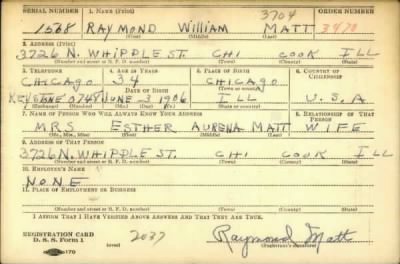 SERIAL NUMBER 1. NAME (Print) 3704 ORDER NUMBER
1568 RAYMOND William MATT 3478
(First) (Middle) (Last)
2. ADDRESS (Print)
3726 N. WHIPPLE ST. CHI COOK ILL
(Number and street or R. F. D. number) (Town) (County) (State)
3. TELEPHONE 4. AGE IN YEARS 5. PLACE OF BIRTH 6. COUNTRY OF CITIZENSHIP
CHICAGO 34 CHICAGO
DATE OF BIRTH (Town or county)
KEYSTONE 0744 JUNE 2 1906 ILL U.S.A
(Exchange) (Number) (Mo.) (Day) (Yr.) (State or country)
7. NAME OF PERSON WHO WILL ALWAYS KNOW YOUR ADDRESS 8. RELATIONSHIP OF THAT PERSON
MRS ESTHER AURENA MATT WIFE
(Mr., Mrs., Miss) (First) (Middle) (Last)
9. ADDRESS OF THAT PERSON
3726 N. WHIPPLE ST. CHI COOK ILL
(Number and street or R. F. D. number) (Town) (County) (State)
10. EMPLOYER'S NAME
NONE
11. PLACE OF EMPLOYMENT OR BUSINESS
(Number and street or R. F. D. number) (Town) (County) (State)
I AFFIRM THAT I HAVE VERIFIED ABOVE ANSWERS AND THAT THEY ARE TRUE.
REGISTRATION CARD
D. S. S. Form 1 (over) 2037 Raymond Matt
(Registrant's signature)